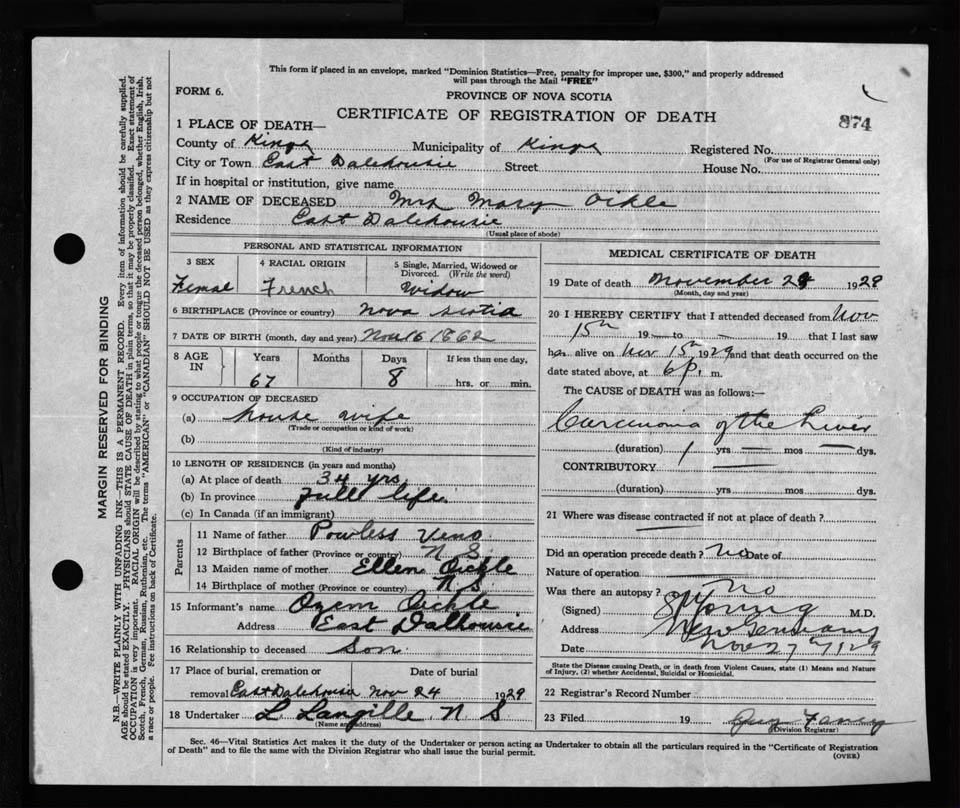 This form if placed in an envelope, marked "Dominion Statistics—Free, penalty for improper use, $300," and properly addressed
will pass through the Mail "FREE"
FORM 6.
PROVINCE OF NOVA SCOTIA
CERTIFICATE OF REGISTRATION OF DEATH
874
1 PLACE OF DEATH—
County of Kings Municipality of Kings Registered No.
(For use of Registrar General only)
City or Town East Dalehousie Street House No.
If in hospital or institution, give name
2 NAME OF DECEASED Mrs Mary Oikle
Residence East Dalehousie
(Usual place of abode)
PERSONAL AND STATISTICAL INFORMATION
3 SEX 4 RACIAL ORIGIN 5 Single, Married, Widowed or
Divorced. (Write the word)
Femal French Widow
6 BIRTHPLACE (Province or country) Nova Scotia
7 DATE OF BIRTH (month, day and year) Nov 16 1862
8 AGE IN Years Months Days If less than one day,
67 8 hrs. or min.
9 OCCUPATION OF DECEASED
(a) house wife
(Trade or occupation or kind of work)
(b)
(Kind of industry)
10 LENGTH OF RESIDENCE (in years and months)
(a) At place of death 34 yrs
(b) In province full life
(c) In Canada (if an immigrant)
Parents
11 Name of father Powless Veno
12 Birthplace of father (Province or country) N S
13 Maiden name of mother Ellen Oickle
14 Birthplace of mother (Province or country) N S
15 Informant's name Ozem Oickle
Address East Dalhousie
16 Relationship to deceased Son
17 Place of burial, cremation or Date of burial
removal East Dalehousie Nov 24 1929
18 Undertaker L Langille N S
(Name and address)
MEDICAL CERTIFICATE OF DEATH
19 Date of death November 1929
(Month, day and year)
20 I HEREBY CERTIFY that I attended deceased from Nov
15th 19 — to — 19 that I last saw
h alive on Nov 15th 1929 and that death occurred on the
date stated above, at 6 p. m.
The CAUSE of DEATH was as follows:—
Carcinoma of the Liver
(duration) 1 yrs — mos — dys.
CONTRIBUTORY
(duration) yrs mos dys.
21 Where was disease contracted if not at place of death?
Did an operation precede death? no Date of
Nature of operation
Was there an autopsy? no
(Signed) Young M.D.
Address New Germany
Date Nov 27 1929
State the Disease causing Death, or in death from Violent Causes, state (1) Means and Nature
of Injury, (2) whether Accidental, Suicidal or Homicidal.
22 Registrar's Record Number
23 Filed 19 Guy
(Division Registrar)
Sec. 46—Vital Statistics Act makes it the duty of the Undertaker or person acting as Undertaker to obtain all the particulars required in the "Certificate of Registration
of Death" and to file the same with the Division Registrar who shall issue the burial permit.
(OVER)
MARGIN RESERVED FOR BINDING
N.B.—WRITE PLAINLY WITH UNFADING INK—THIS IS A PERMANENT RECORD. Every item of information should be carefully supplied.
AGE should be stated EXACTLY. PHYSICIANS should STATE CAUSE OF DEATH in plain terms, so that it may be properly classified. Exact statement of
OCCUPATION is very important. RACIAL ORIGIN will be described by stating to what people or tongue the deceased person belonged, whether English, Irish,
Scotch, French, German, Russian, Ruthenian, etc. The terms "AMERICAN" or "CANADIAN" SHOULD NOT BE USED as they express citizenship but not
a race or people. Fee instructions on back of Certificate.